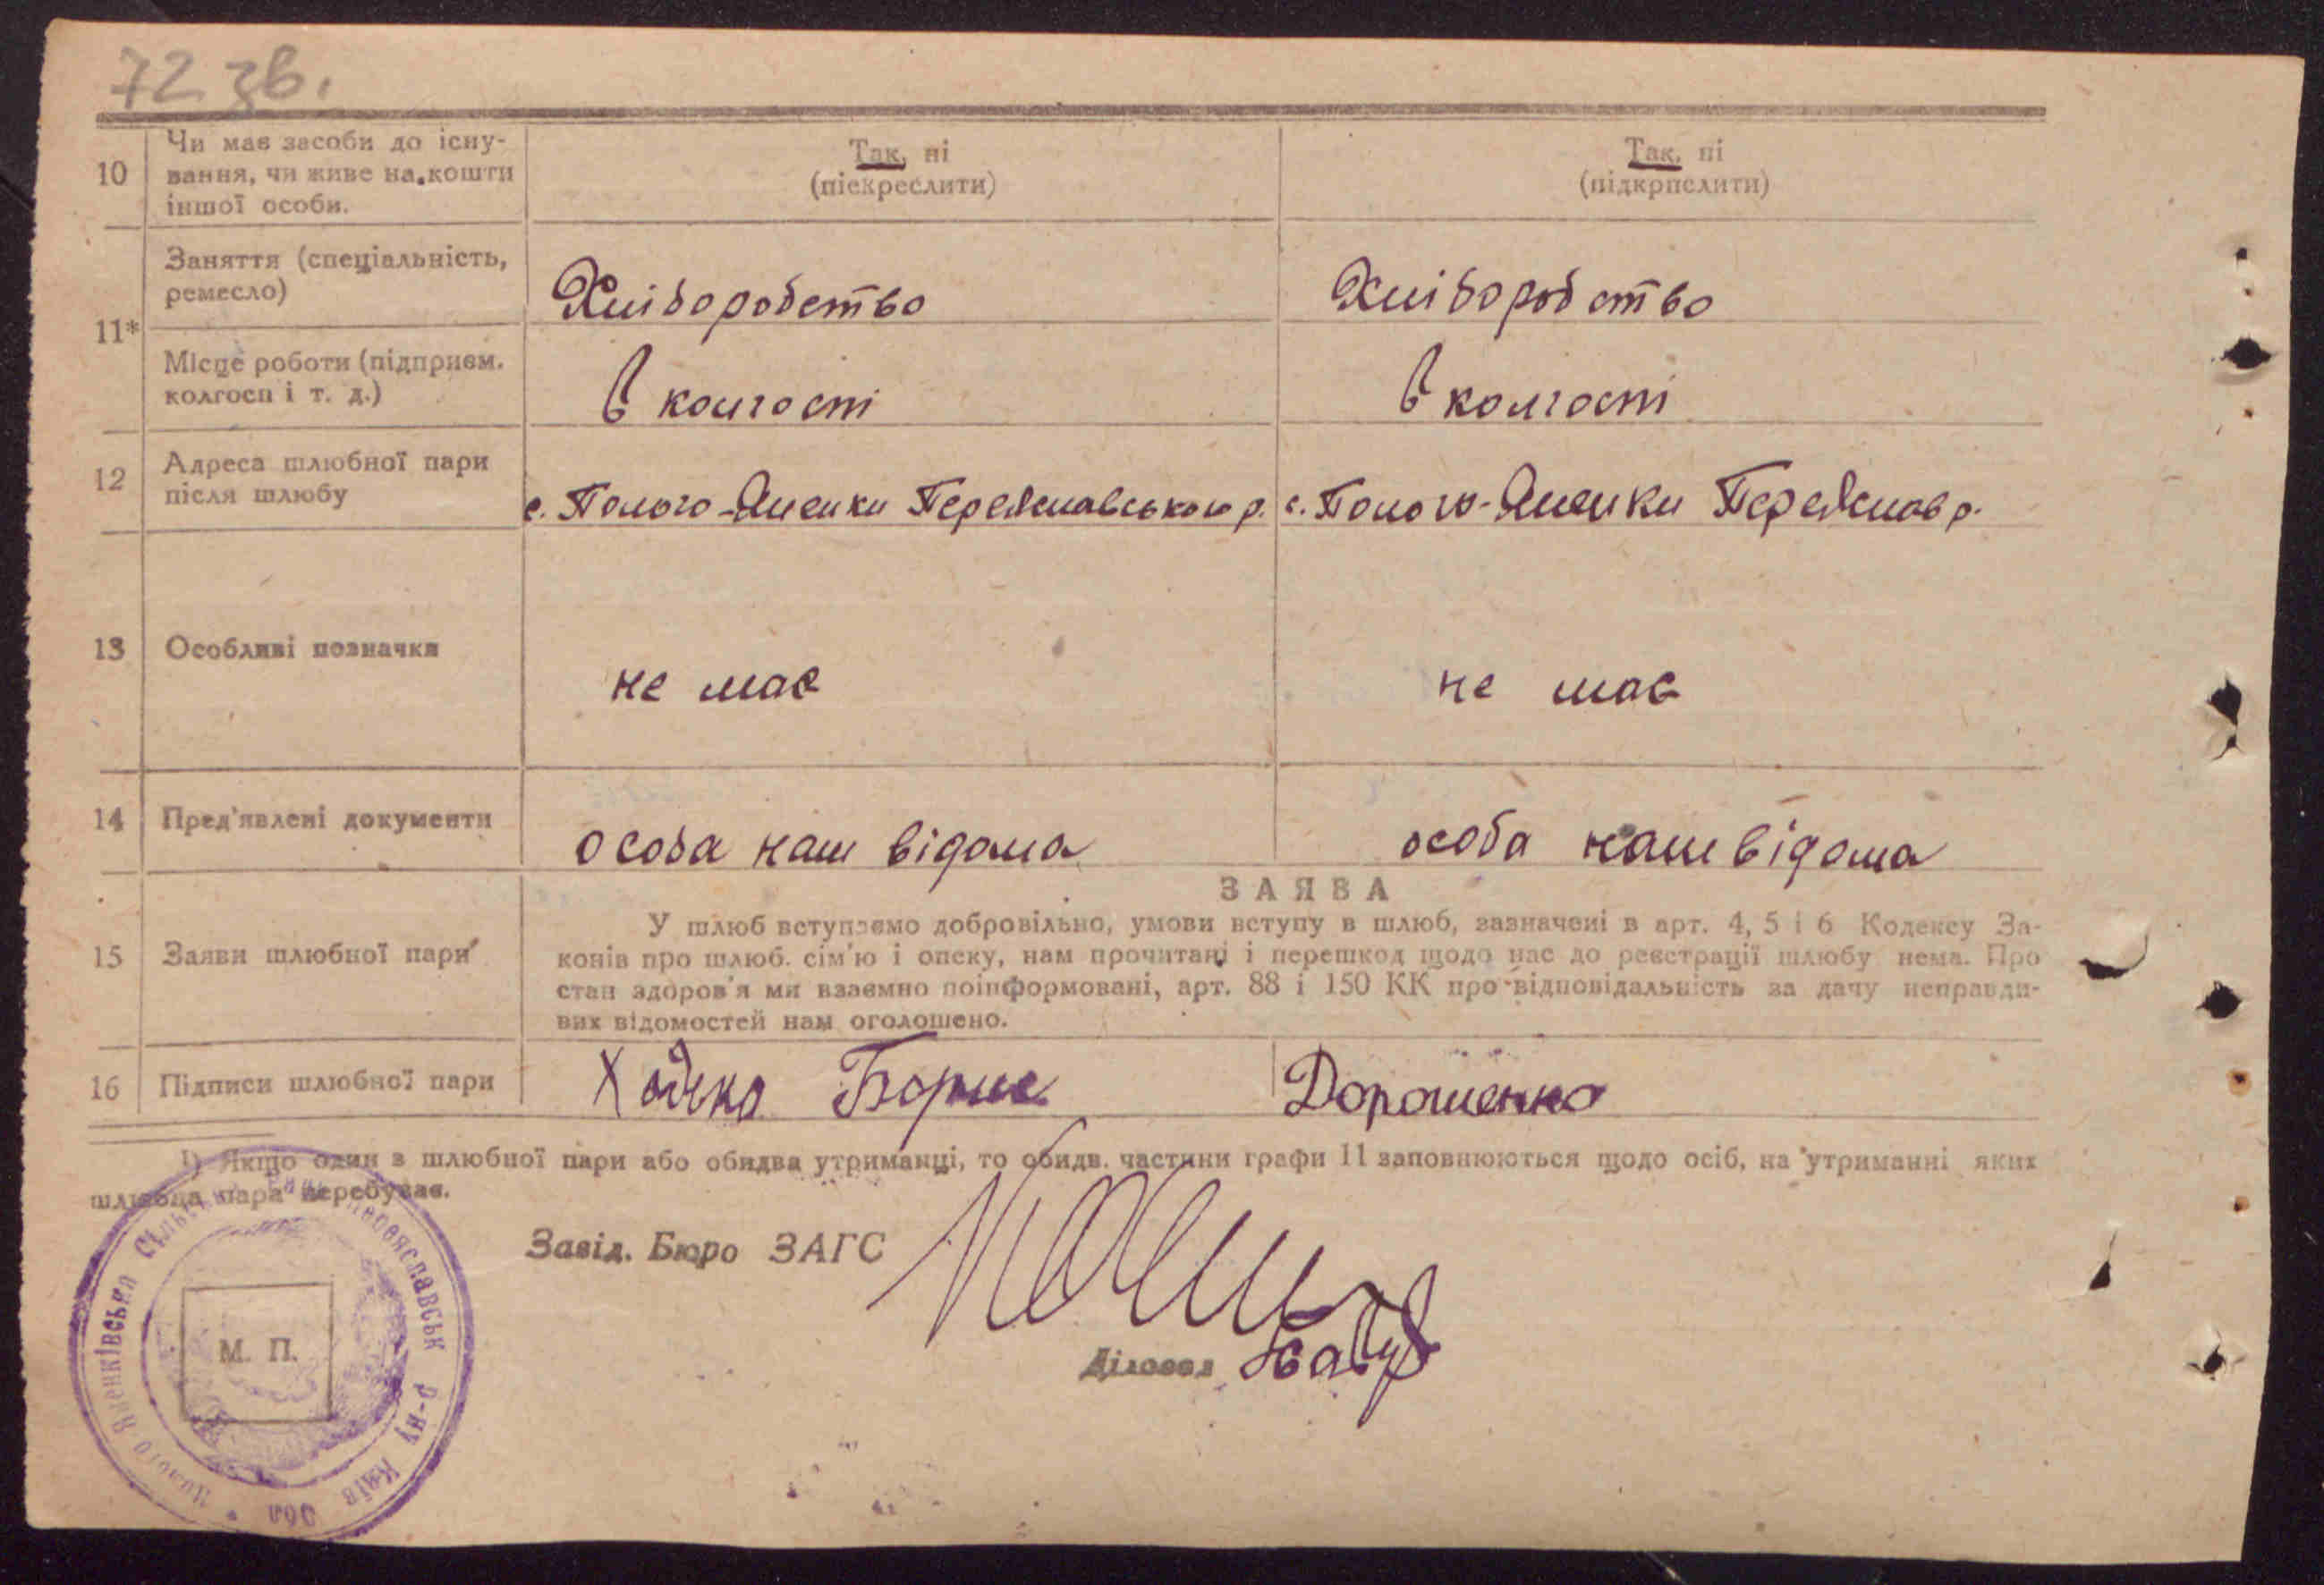 72 зв.
10 Чи має засоби до існу-
вання, чи живе на кошти
іншої особи.
Так, ні
(піекреслити)
Так, ні
(підкрпслити)
11*
Заняття (спеціальність,
ремесло)
Хліборобство
Хліборобство
Місце роботи (підприєм.
колгосп і т. д.)
в колгості
в колгості
12 Адреса шлюбної пари
після шлюбу
с. Полого-Яненки Переяславського р.
с. Полого-Яненки Переяслав р.
13 Особливі позначки
не має
не має
14 Пред'явлені документи
особа нам відома
особа нам відома
15 Заяви шлюбної пари
ЗАЯВА
У шлюб вступаємо добровільно, умови вступу в шлюб, зазначені в арт. 4, 5 і 6 Кодексу За-
конів про шлюб. сім'ю і опеку, нам прочитані і перешкод щодо нас до реєстрації шлюбу нема. Про
стан здоров'я ми взаємно поінформовані, арт. 88 і 150 КК про відповідальність за дачу неправди-
вих відомостей нам оголошено.
16 Підписи шлюбної пари
Борис
Дорошенко
1) Якщо один з шлюбної пари або обидва утриманці, то обидв. частини графи 11 заповнюються щодо осіб, на утриманні яких
шлюбна пара перебуває.
Завід. Бюро ЗАГС
Діловод
М. П.
Полого Яненківська Сільська Рада Переяславськ р-ну Київ обл